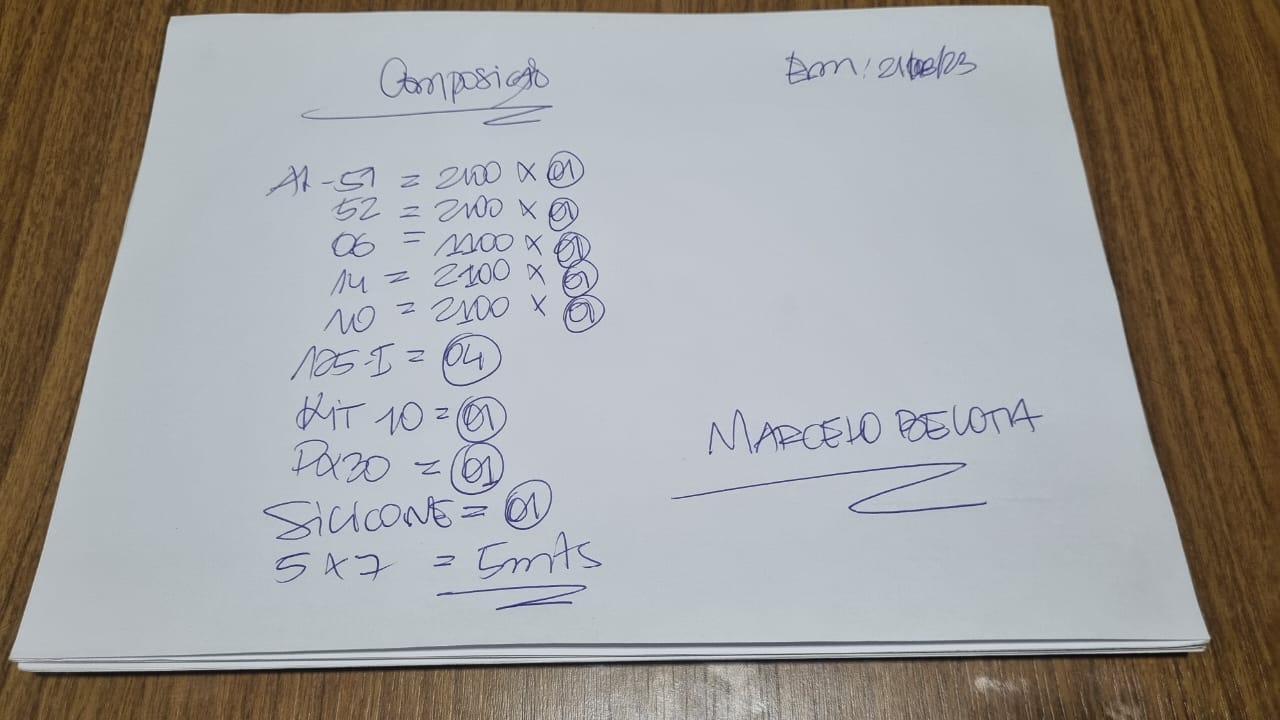 Composição
Em: 21/08/23
A1-51 = 2100 x 01
52 = 2100 x 01
06 = 1100 x 01
14 = 2100 x 01
10 = 2100 x 01
125-I = 04
KIT 10 = 01
30 = 01
SILICONE = 01
5 x 7 = 5mts
MARCELO BELOTIA